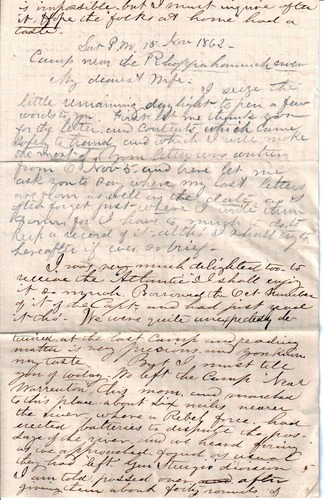 is impossible, but I must inquire after
it. Hope the folks at home had a
taste.
Sat P.M. 15 Nov 1862 –
Camp near the Rhappahannock river
My dearest Wife.
I seize the
little remaining daylight to pen a few
words to you. First let me thank you
for the letter, and contents, which came
safely to hand, and which I will make
the most of. Your letter was written
from Nov 5. and here let me
ask you to say where my last letters
are from as well as the date, as I
often forget just where I write them
from, for it have to much to do to
keep a record of it all. I shall try to
hereafter if ever so brief.
I was very much delighted too to
receive the Atlantic. I shall enjoy
it so much. Borrowed the Oct number
of it of the Capt. and just read
it tho'. We were quite unexpectedly de
tained at the last Camp and reading
matter is very precious, and you know
my taste. But I must tell
you of today. We left the Camp Near
Warrenton this morn, and marched
to this place about six miles nearer
the river, where a Rebel force had
erected batteries to dispute the pas-
sage of the river, and we heard firing
as we approached, found, as usual
they had left. Gen Sturgis division
I am told passed over and after
giving them about forty rounds of